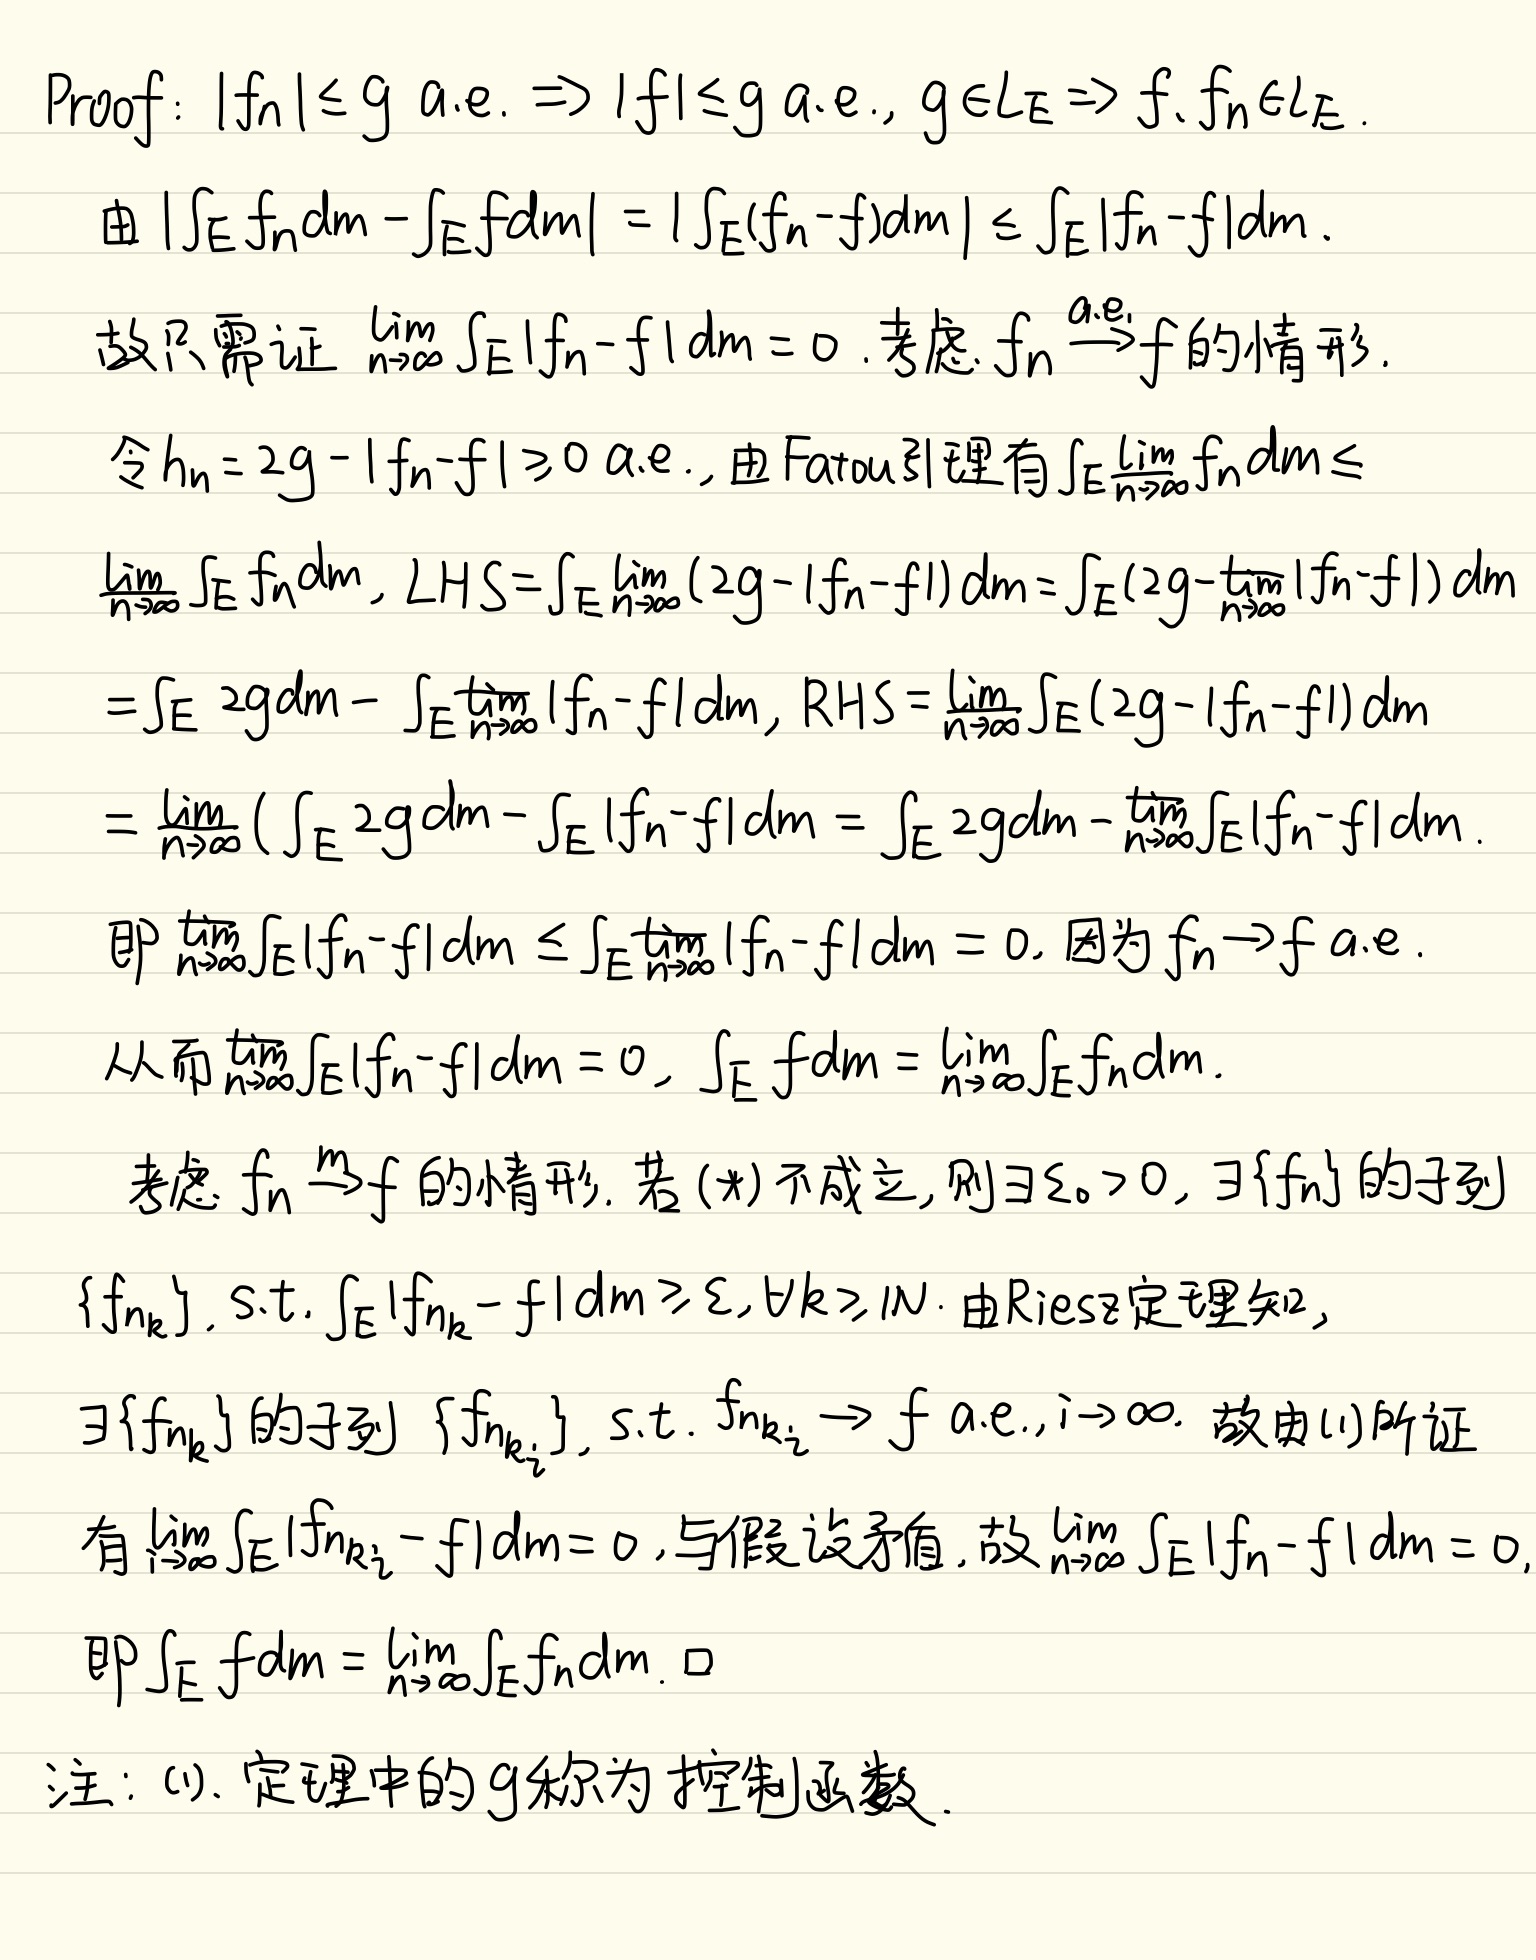 Proof: |fₙ| ≤ g a.e. ⇒ |f| ≤ g a.e., g∈L_E ⇒ f、fₙ∈L_E.
由 |∫_E fₙdm − ∫_E fdm| = |∫_E(fₙ−f)dm| ≤ ∫_E|fₙ−f|dm.
故只需证 lim_{n→∞} ∫_E|fₙ−f|dm = 0. 考虑 fₙ \xrightarrow{a.e.} f 的情形.
令hₙ = 2g − |fₙ−f| ≥ 0 a.e., 由Fatou引理有∫_E \underline{lim}_{n→∞} fₙdm ≤
\underline{lim}_{n→∞} ∫_E fₙdm, LHS = ∫_E \underline{lim}_{n→∞} (2g−|fₙ−f|)dm = ∫_E(2g−\overline{lim}_{n→∞}|fₙ−f|)dm
= ∫_E 2gdm − ∫_E \overline{lim}_{n→∞}|fₙ−f|dm, RHS = \underline{lim}_{n→∞} ∫_E(2g−|fₙ−f|)dm
= \underline{lim}_{n→∞} (∫_E 2gdm − ∫_E|fₙ−f|dm = ∫_E 2gdm − \overline{lim}_{n→∞} ∫_E|fₙ−f|dm.
即 \overline{lim}_{n→∞} ∫_E|fₙ−f|dm ≤ ∫_E \overline{lim}_{n→∞}|fₙ−f|dm = 0, 因为 fₙ→f a.e.
从而 \overline{lim}_{n→∞} ∫_E|fₙ−f|dm = 0, ∫_E fdm = lim_{n→∞} ∫_E fₙdm.
考虑 fₙ \xrightarrow{m} f 的情形. 若(*)不成立, 则∃ε₀>0, ∃{fₙ}的子列
{f_{n_k}}, s.t. ∫_E|f_{n_k} − f|dm ≥ ε, ∀k≥ℕ. 由Riesz定理知,
∃{f_{n_k}}的子列 {f_{n_{k_i}}}, s.t. f_{n_{k_i}} → f a.e., i→∞. 故由(1)所证
有 lim_{i→∞} ∫_E|f_{n_{k_i}} − f|dm = 0, 与假设矛盾. 故 lim_{n→∞} ∫_E|fₙ−f|dm = 0,
即∫_E fdm = lim_{n→∞} ∫_E fₙdm. □
注: (1). 定理中的g称为控制函数.